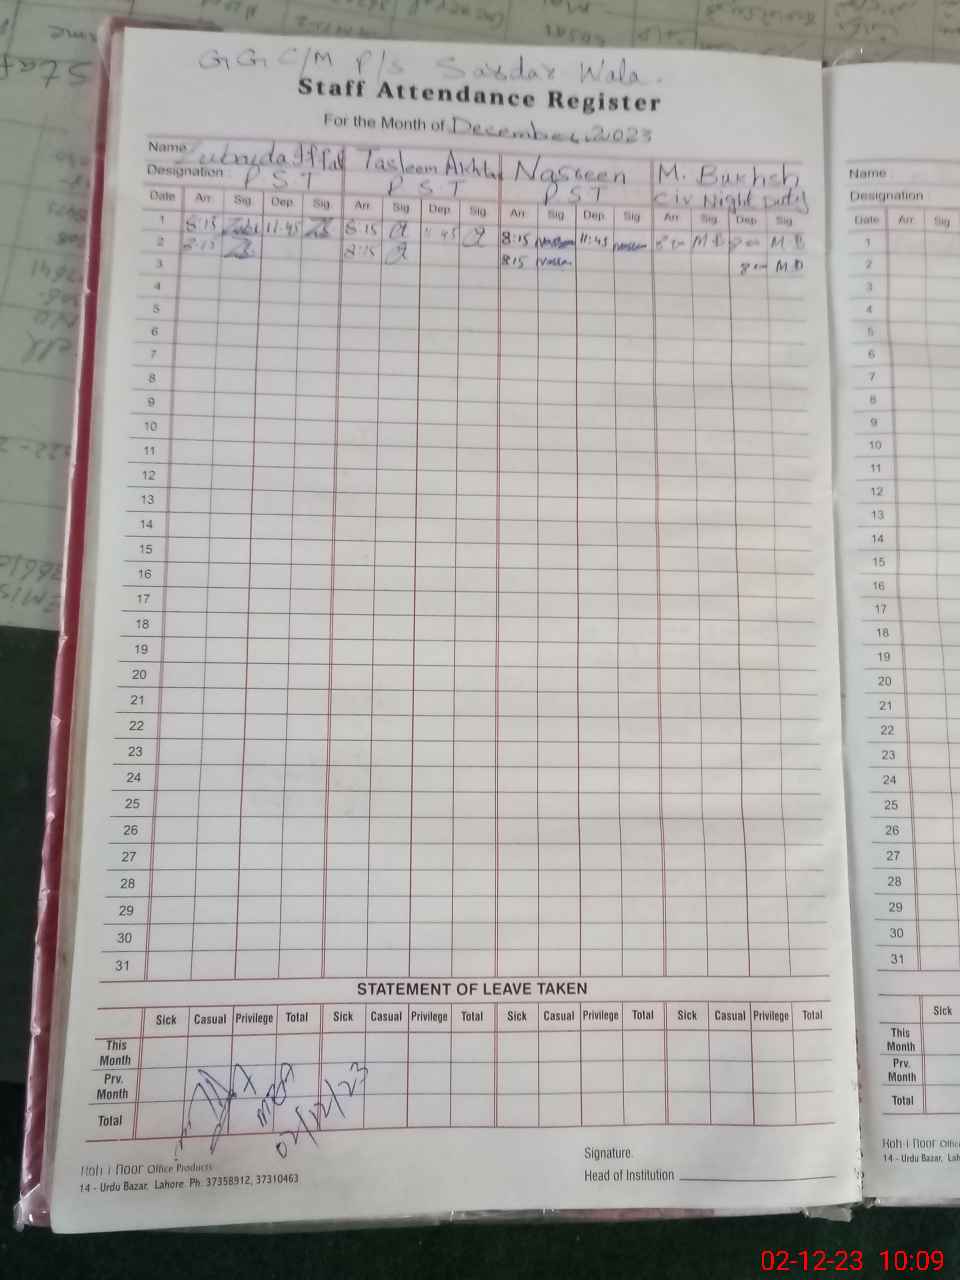 GGC/M P/S Sardar Wala.
Staff Attendance Register
For the Month of December, 2023
Name Zubayda Iffat Tasleem Akhtar Nasreen M. Bukhsh
Designation : PST PST PST Civ Night Duty
Date Arr. Sig. Dep. Sig. Arr. Sig. Dep. Sig. Arr. Sig. Dep. Sig. Arr. Sig. Dep. Sig.
1 8:15 11:45 8:15 11:45 8:15 11:45 8:00 M.B 8:00 M.B
2 8:15 8:15 8:15 8:00 M.B
3
4
5
6
7
8
9
10
11
12
13
14
15
16
17
18
19
20
21
22
23
24
25
26
27
28
29
30
31
STATEMENT OF LEAVE TAKEN
Sick Casual Privilege Total Sick Casual Privilege Total Sick Casual Privilege Total Sick Casual Privilege Total
This Month
Prv. Month
Total
02/12/23
Signature.
Head of Institution
Koh-i-Noor Office Products
14 - Urdu Bazar, Lahore. Ph. 37358912, 37310463
Name :
Designation :
Date Arr. Sig
1
2
3
4
5
6
7
8
9
10
11
12
13
14
15
16
17
18
19
20
21
22
23
24
25
26
27
28
29
30
31
Sick
This Month
Prv. Month
Total
Koh-i-Noor Office Prod
14 - Urdu Bazar, Lah
02-12-23 10:09